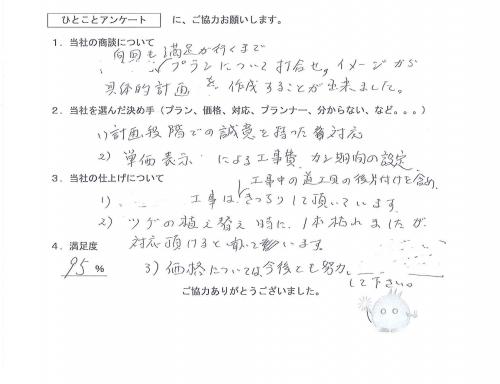 ひとことアンケート に、ご協力お願いします。
1．当社の商談について
何回も満足が行くまで
プランについて打合せ，イメージから
具体的計画を作成することが出来ました。
2．当社を選んだ決め手（プラン、価格、対応、プランナー、分からない、など。。。）
1)計画段階での誠意を持った対応
2) 単価表示による工事費 の設定
3．当社の仕上げについて
工事中の道工具の後片付けを含め
1) 工事はきっちりして頂いています。
2) ツゲの植え替え時に、1本枯れましたが
4．満足度
対応頂けると聞いています。
95 %
3) 価格については今後とも努力
して下さい。
ご協力ありがとうございました。